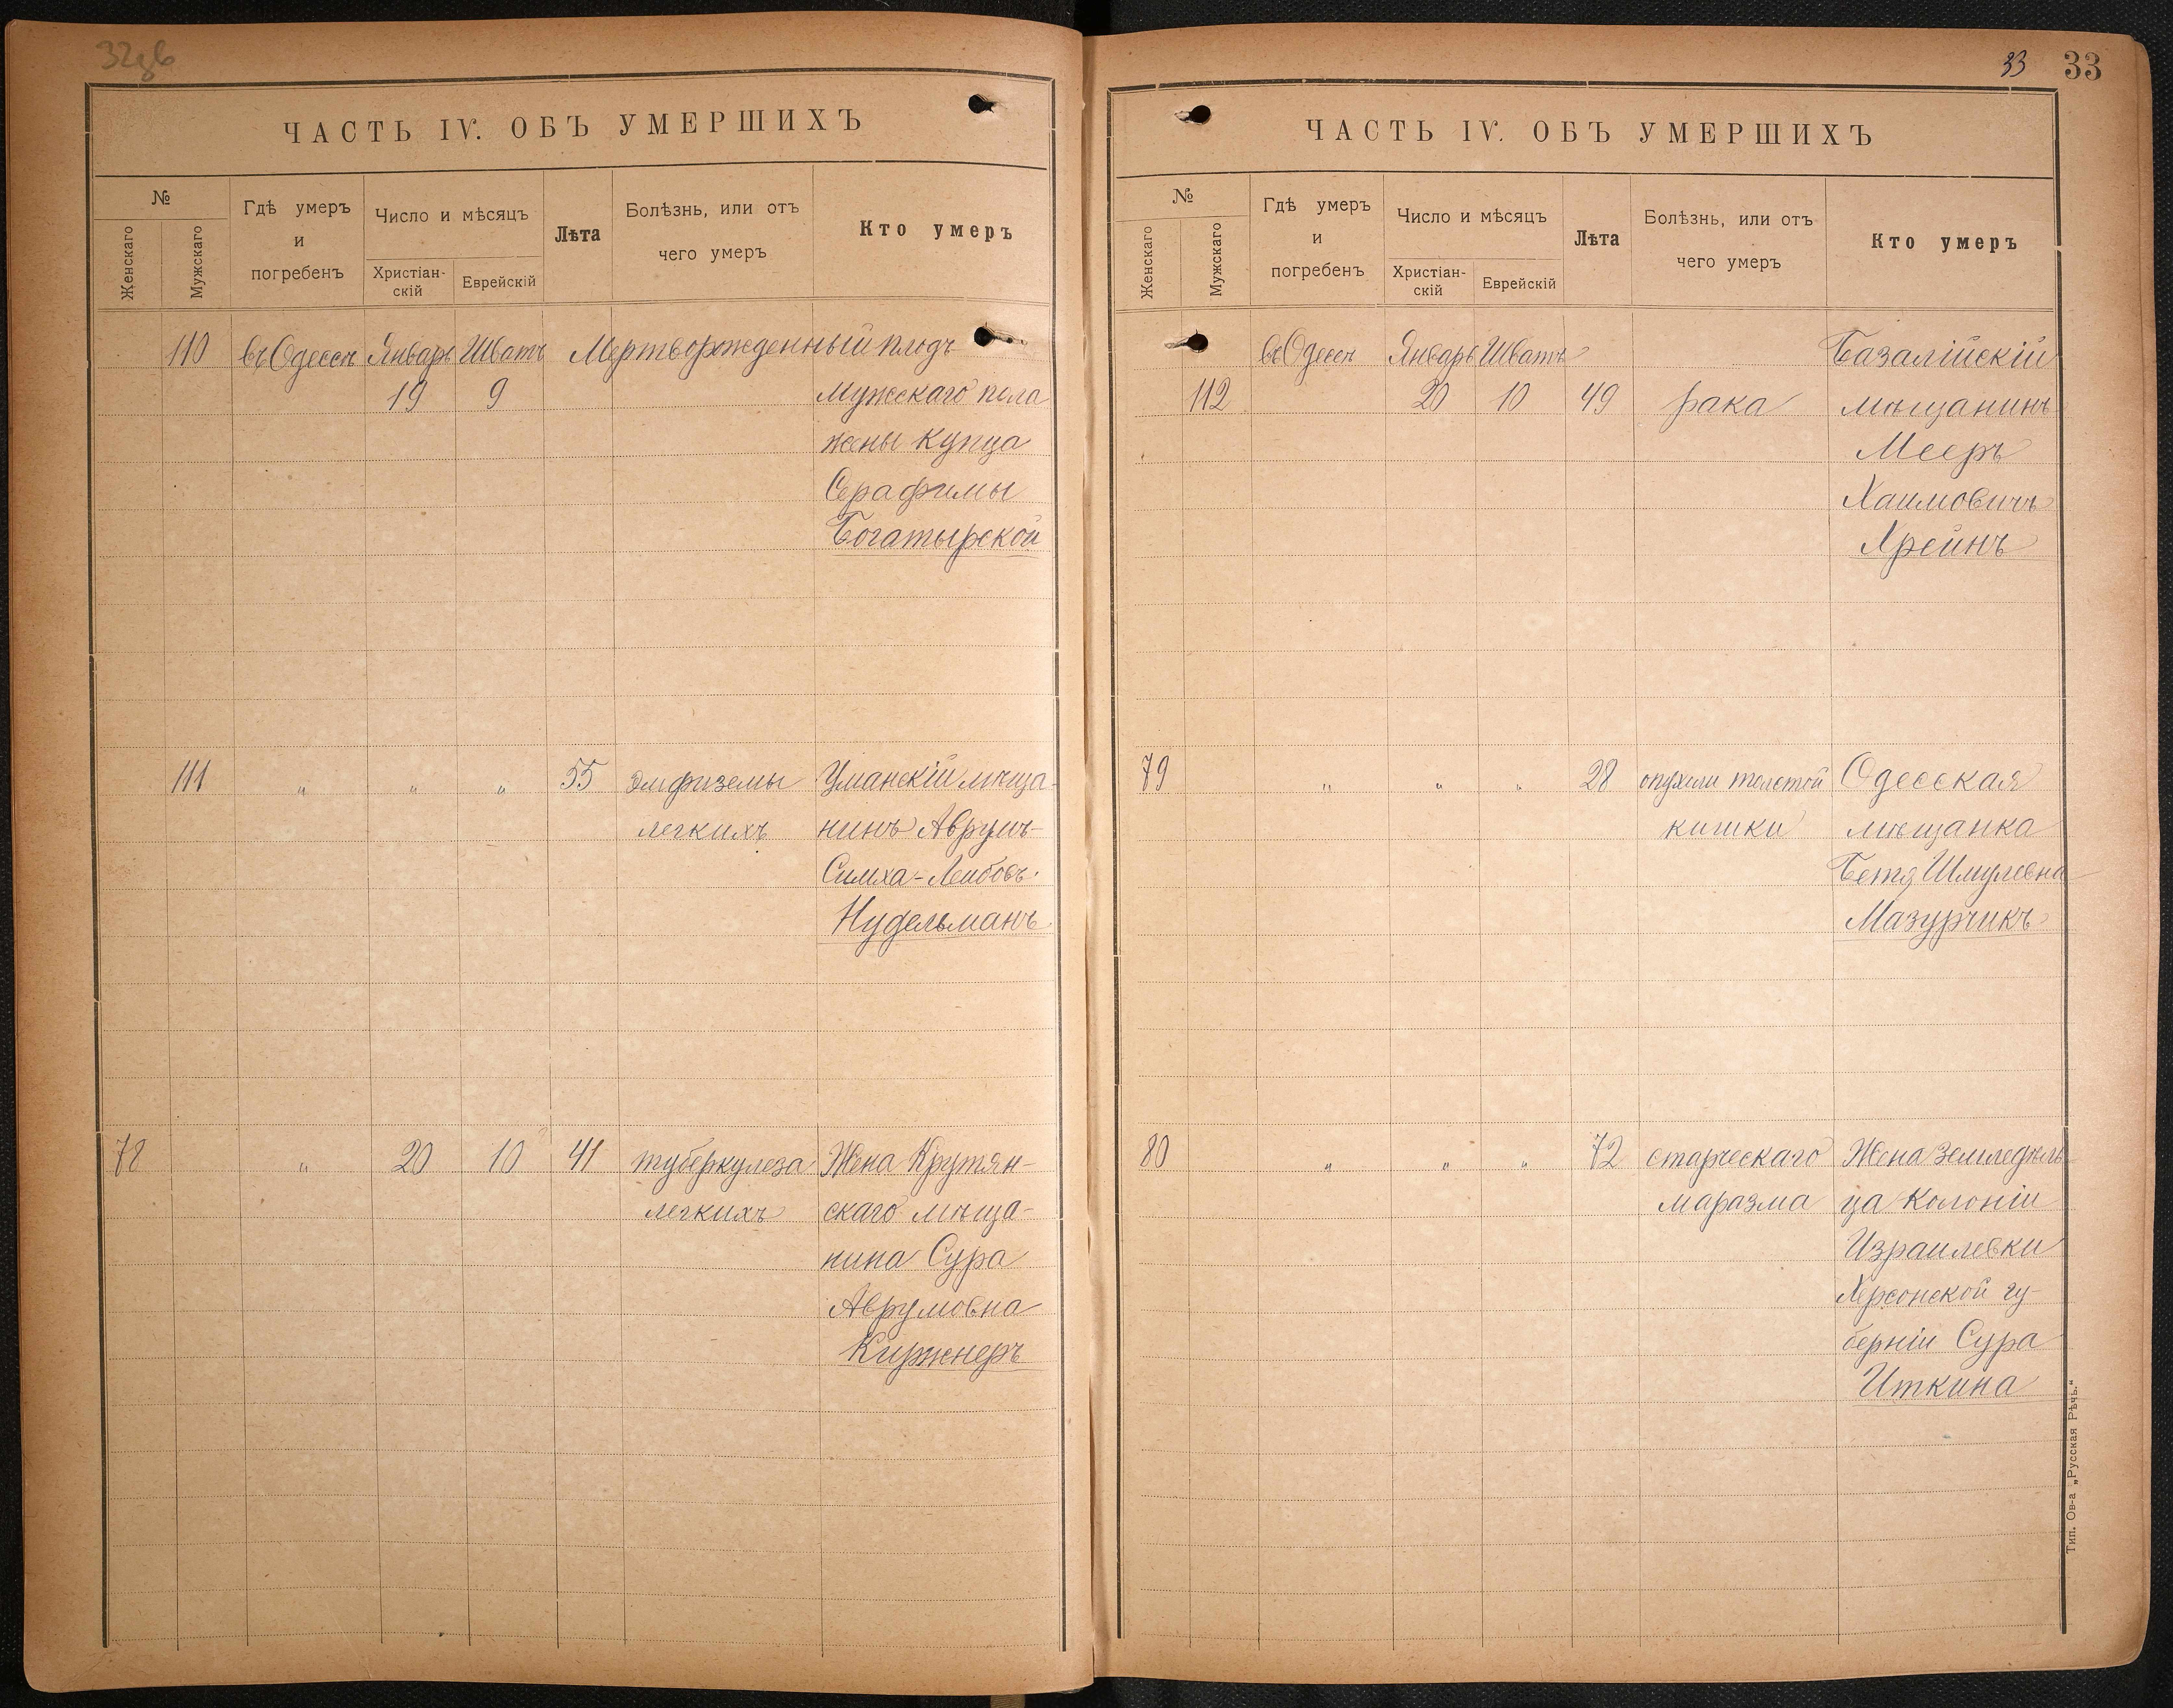 32зв
ЧАСТЬ IV. ОБЪ УМЕРШИХЪ
№
Женскаго
Мужскаго
Гдѣ умеръ
и
погребенъ
Число и мѣсяцъ
Христіан-
скій
Еврейскій
Лѣта
Болѣзнь, или отъ
чего умеръ
Кто умеръ
110 въ Одессѣ Январь Шватъ Мертворожденный плодъ
19 9 Мужскаго пола
жены купца
Серафимы
Богатырской
111 " " " 55 эмфиземы Уманскій мѣща-
легкихъ нинъ Аврумъ-
Симха-Лейбовъ
Нудельманъ
78 " 20 10 41 туберкулеза Жена Крутян-
легкихъ скаго мѣща-
нина Сура
Аврумовна
Киржнеръ
33 33
ЧАСТЬ IV. ОБЪ УМЕРШИХЪ
№
Женскаго
Мужскаго
Гдѣ умеръ
и
погребенъ
Число и мѣсяцъ
Христіан-
скій
Еврейскій
Лѣта
Болѣзнь, или отъ
чего умеръ
Кто умеръ
въ Одессѣ Январь Шватъ Базалійскій
112 20 10 49 рака мѣщанинъ
Мееръ
Хаимовичъ
Хрейнъ
79 " " " 28 опухоли толстой Одесская
кишки мѣщанка
Бетя Шмулевна
Мазурчикъ
80 " " " 72 старческаго Жена земледѣль
маразма ца колоніи
Израилевки
Херсонской гу-
берніи Сура
Иткина
Тип. Ов-а „Русская Рѣчь.“